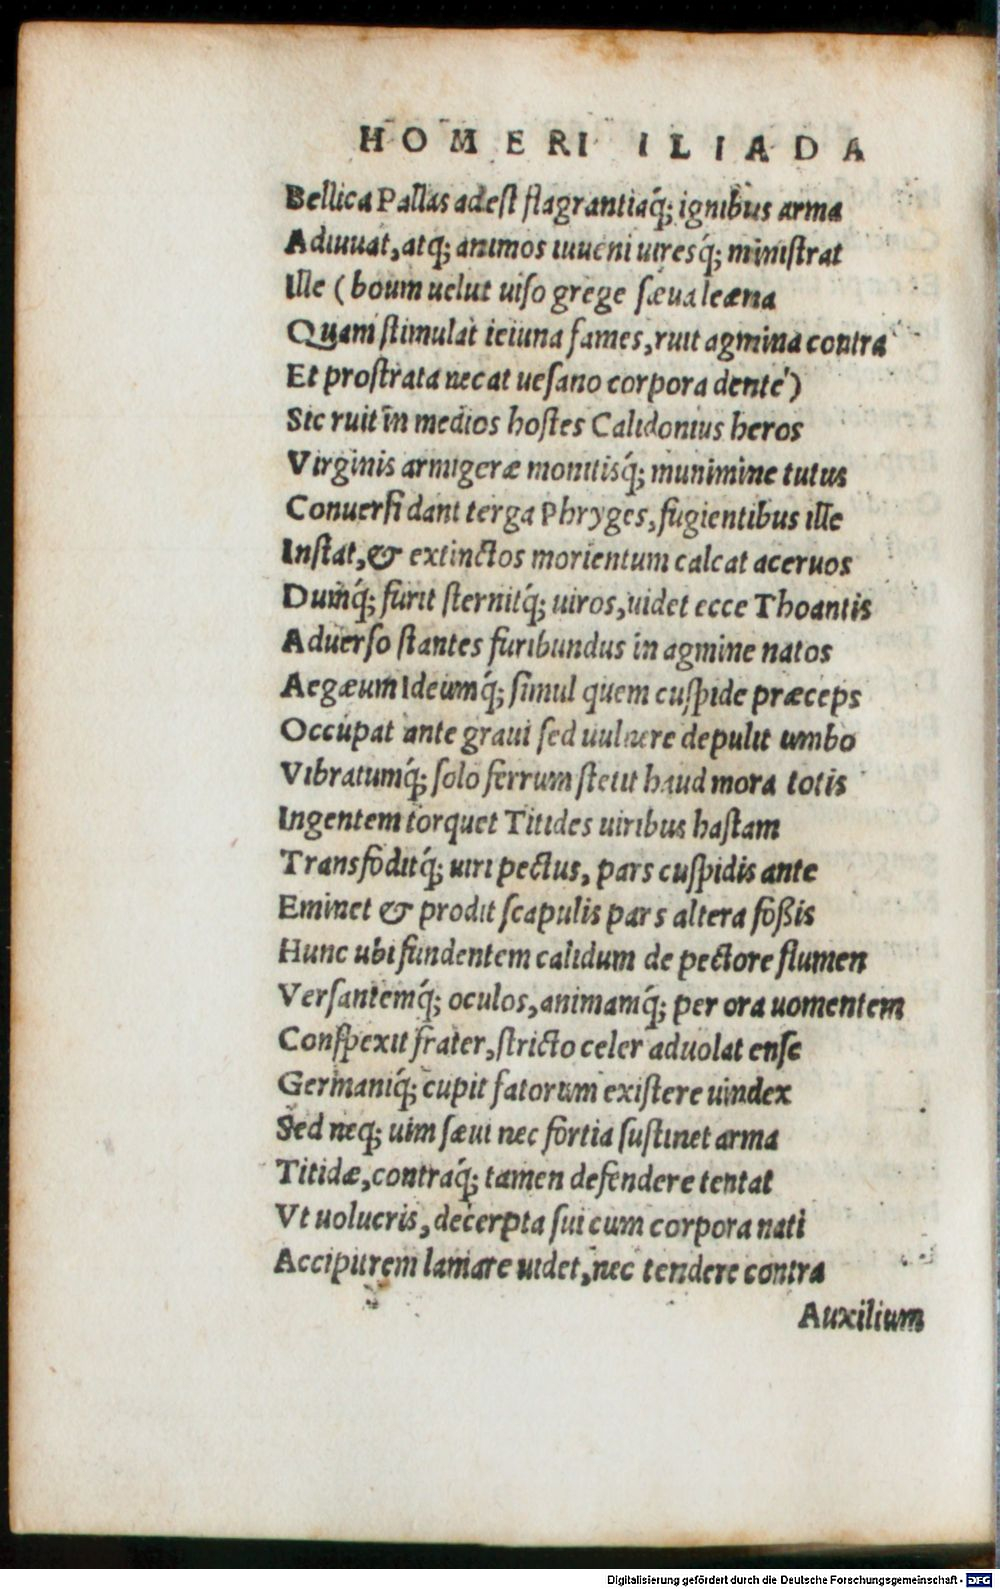 HOMERI ILIADA
Bellica Pallas adest flagrantiaq́; ignibus arma
Adiuuat, atq; animos iuueni uiresq́; ministrat
Ille (boum uelut uiso grege sæua leæna
Quam stimulat ieiuna fames, ruit agmina contra
Et prostrata necat uesano corpora dente)
Sic ruit in medios hostes Calidonius heros
Virginis armigeræ monitisq́; munimine tutus
Conuersi dant terga Phryges, fugientibus ille
Instat, & extinctos morientum calcat aceruos
Dumq́; furit sternitq́; uiros, uidet ecce Thoantis
Aduerso stantes furibundus in agmine natos
Aegæum Ideumq́; simul quem cuspide præceps
Occupat ante graui sed uulnere depulit umbo
Vibratumq́; solo ferrum stetit haud mora totis
Ingentem torquet Titides uiribus hastam
Transfoditq́; uiri pectus, pars cuspidis ante
Eminet & prodit scapulis pars altera foßis
Hunc ubi fundentem calidum de pectore flumen
Versantemq́; oculos, animamq́; per ora uomentem
Conspexit frater, stricto celer aduolat ense
Germaniq́; cupit fatorum existere uindex
Sed neq; uim sæui nec fortia sustinet arma
Titidæ, contraq́; tamen defendere tentat
Vt uolucris, decerpta sui cum corpora nati
Accipitrem laniare uidet, nec tendere contra
Auxilium
Digitalisierung gefördert durch die Deutsche Forschungsgemeinschaft - DFG